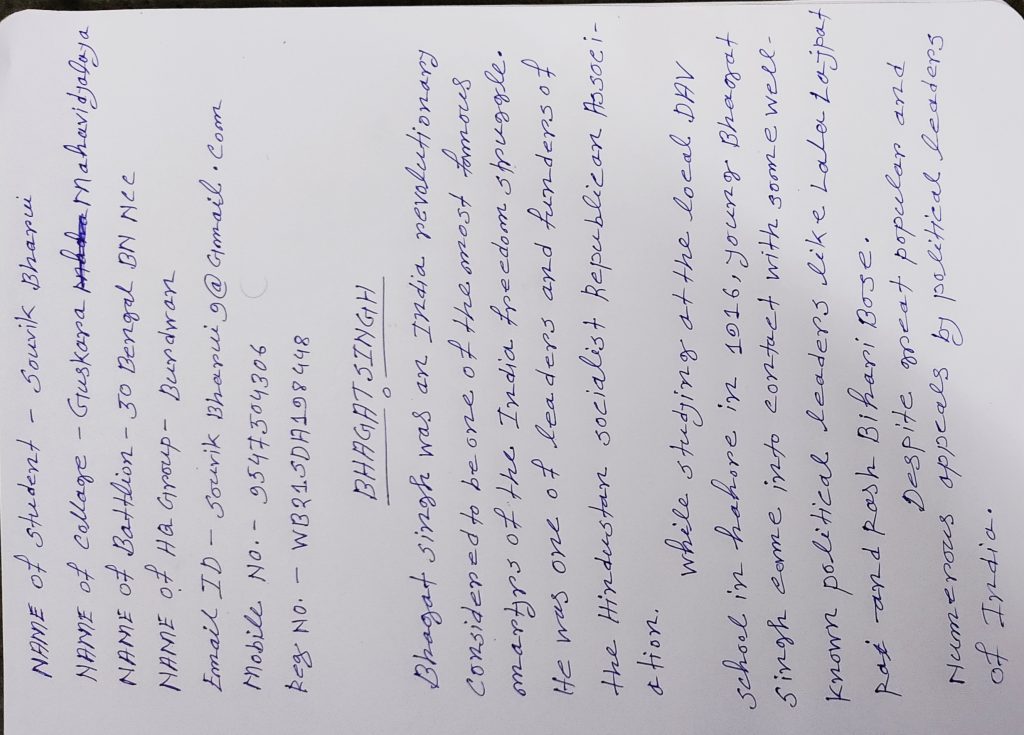 NAME of student - Souvik Bharui
NAME of Collage - Guskara Mahavidyalaya
NAME of Battlion - 30 Bengal BN NCC
NAME of HQ Group - Burdwan
Email ID - Souvik Bharui9@Gmail.Com
Mobile No. - 9547304306
Reg No. - WB21SDA198448
BHAGAT SINGH
Bhagat singh was an India revolutionary
Considered to be one of the most famous
martyrs of the India freedom struggle.
He was one of leaders and funders of
the Hindustan socialist Republican Associ-
ation.
While studjing at the local DAV
school in hahore in 1916, young Bhagat
Singh come into contact with some well-
known political leaders like Lala Lajpat
Rai and Rash Bihari Bose.
Despite great popular and
Numerous appeals by political leaders
of India.